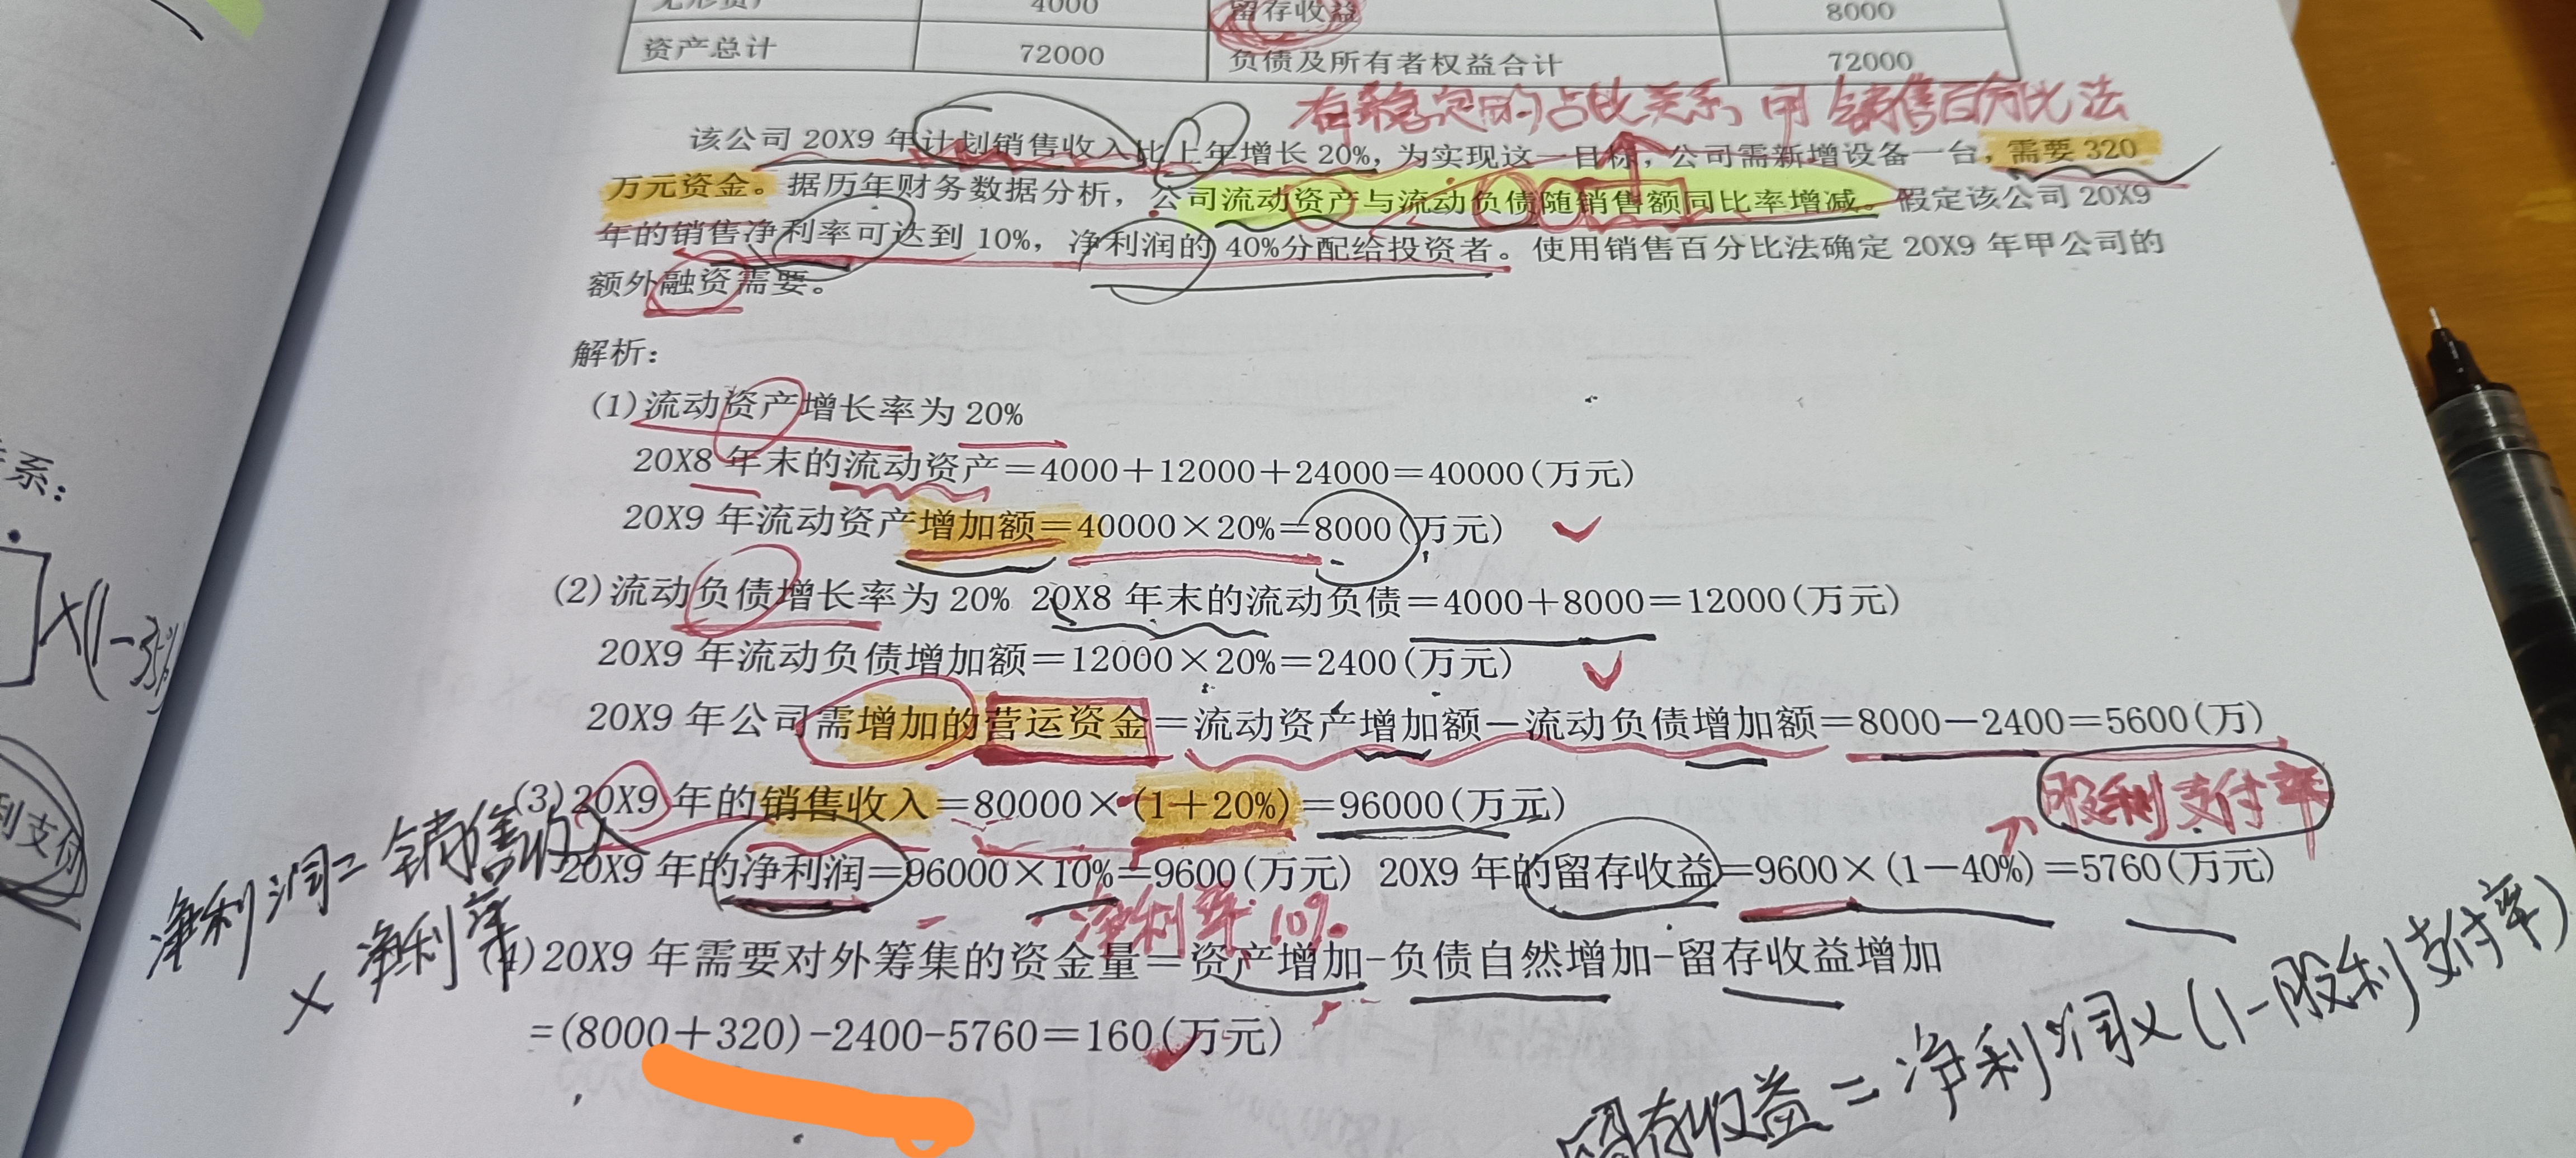 4000 留存收益 8000
资产总计 72000 负债及所有者权益合计 72000
有稳定的占比关系,用销售百分比法
该公司 20X9 年计划销售收入比上年增长 20%,为实现这一目标,公司需新增设备一台,需要 320
万元资金。据历年财务数据分析,公司流动资产与流动负债随销售额同比率增减。假定该公司 20X9
年的销售净利率可达到 10%,净利润的 40%分配给投资者。使用销售百分比法确定 20X9 年甲公司的
额外融资需要。
解析:
(1)流动资产增长率为 20%
20X8 年末的流动资产=4000+12000+24000=40000(万元)
20X9 年流动资产增加额=40000×20%=8000(万元)
(2)流动负债增长率为 20% 20X8 年末的流动负债=4000+8000=12000(万元)
20X9 年流动负债增加额=12000×20%=2400(万元)
20X9 年公司需增加的营运资金=流动资产增加额-流动负债增加额=8000-2400=5600(万)
股利支付率
(3)20X9 年的销售收入=80000×(1+20%)=96000(万元)
20X9 年的净利润=96000×10%=9600(万元) 20X9 年的留存收益=9600×(1-40%)=5760(万元)
净利率 10%
(4)20X9 年需要对外筹集的资金量=资产增加-负债自然增加-留存收益增加
=(8000+320)-2400-5760=160(万元)
净利润=销售收入
×净利率
留存收益=净利润×(1-股利支付率)
系:
×(1-35%)
利支付